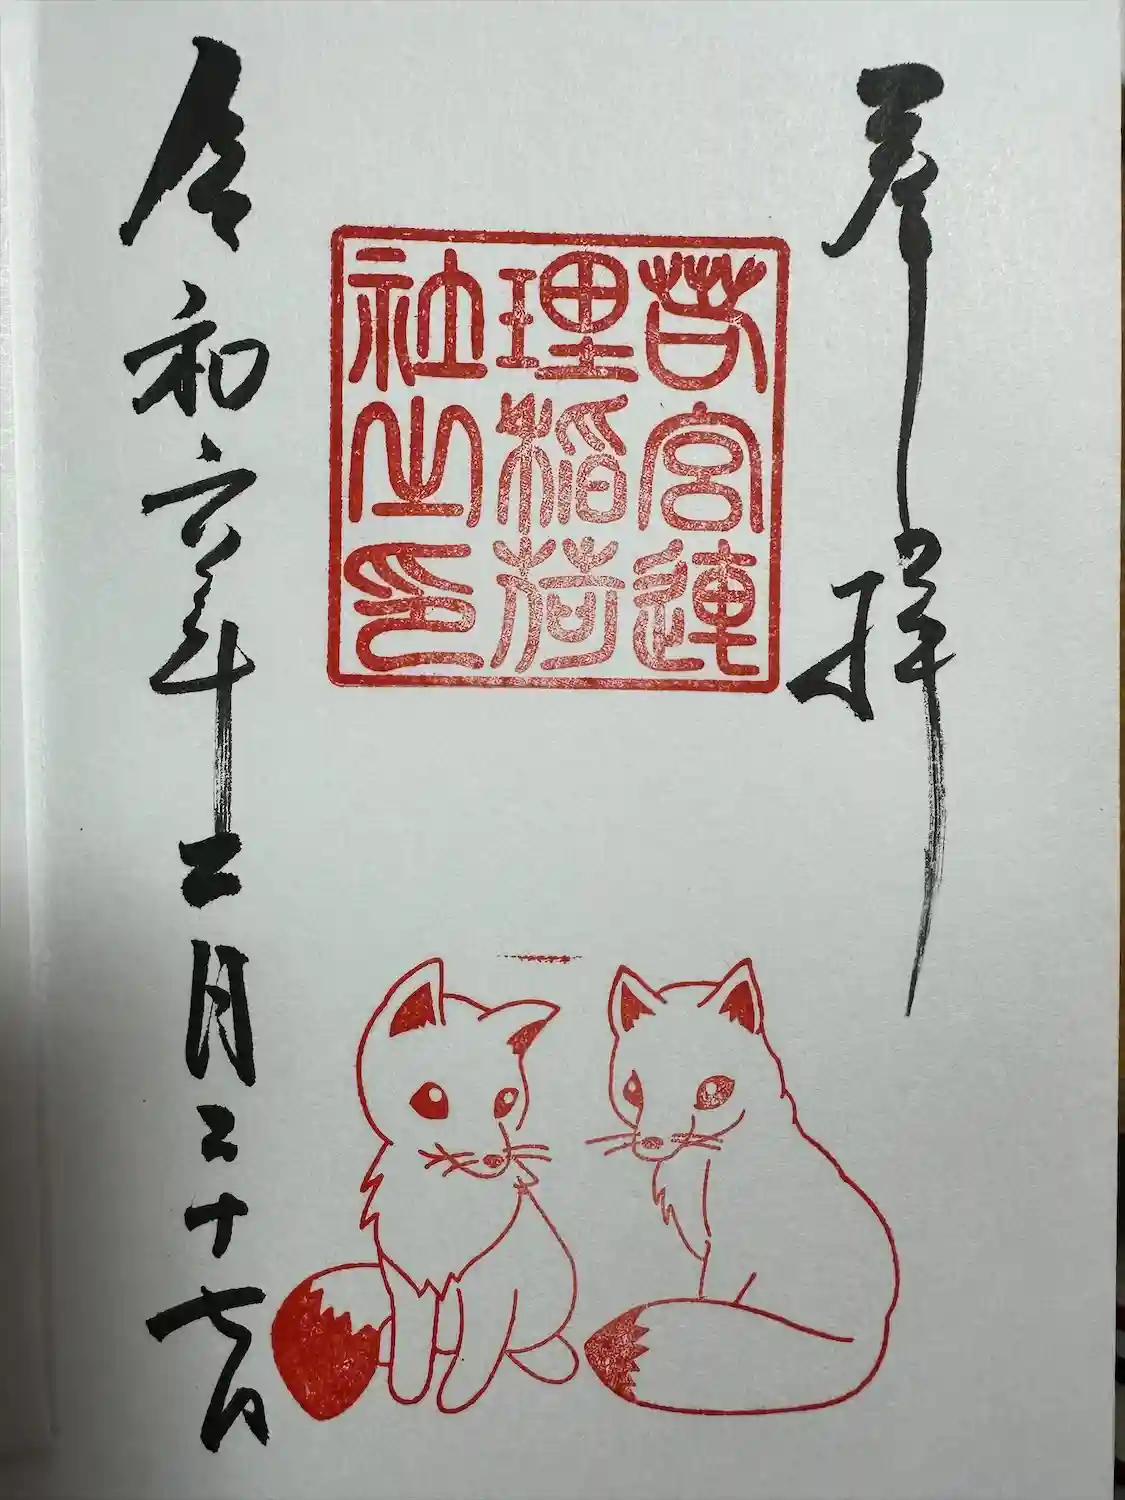 奉拝
若宮連
理稲荷
社之印
令和六年二月二十七日